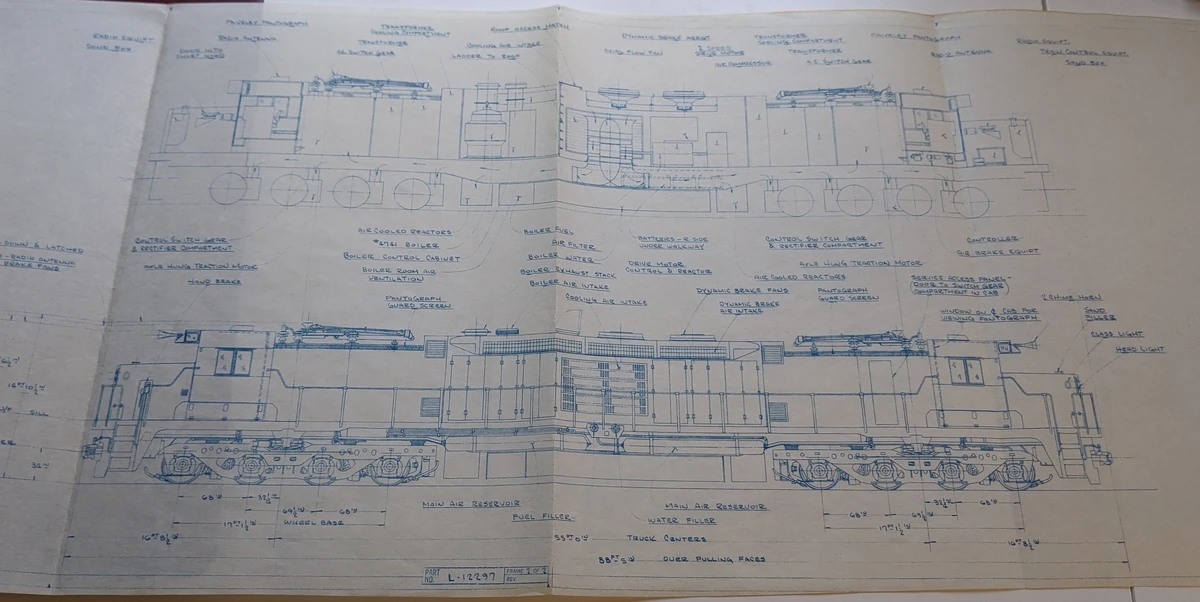 RADIO EQUIPT
SAND BOX
FAIVELEY PANTOGRAPH
RADIO ANTENNA
TRANSFORMER
COOLING COMPARTMENT
TRANSFORMER
GEAR
ROOF ACCESS HATCH
COOLING AIR INTAKE
LADDER TO ROOF
DYNAMIC BRAKE
2 SPEED
DRIVE MOTOR
AIR COMPRESSOR
TRANSFORMER
COOLING COMPARTMENT
TRANSFORMER
A.C. SWITCH GEAR
FAIVELEY PANTOGRAPH
RADIO ANTENNA
RADIO EQUIPT.
TRAIN CONTROL EQUIPT.
SAND BOX
DOWN & LATCHED
RADIO ANTENNA
BRAKE FANS
CONTROL SWITCH GEAR
& RECTIFIER COMPARTMENT
AXLE HUNG TRACTION MOTOR
HAND BRAKE
AIR COOLED REACTORS
#4761 BOILER
BOILER CONTROL CABINET
BOILER ROOM AIR
VENTILATION
PANTOGRAPH
GUARD SCREEN
BOILER FUEL
AIR FILTER
BOILER WATER
BOILER EXHAUST STACK
BOILER AIR INTAKE
COOLING AIR INTAKE
BATTERIES - R SIDE
UNDER WALKWAY
DRIVE MOTOR
CONTROL & REACTOR
DYNAMIC BRAKE FANS
DYNAMIC BRAKE
AIR INTAKE
CONTROL SWITCH GEAR
& RECTIFIER COMPARTMENT
AXLE HUNG TRACTION MOTOR
AIR COOLED REACTORS
PANTOGRAPH
GUARD SCREEN
CONTROLLER
AIR BRAKE EQUIPT
SERVICE ACCESS PANEL -
(DOOR TO SWITCH GEAR
COMPARTMENT IN CAB)
WINDOW ON ℄ CAB FOR
VIEWING PANTOGRAPH
2 CHIME HORN
SAND
FILLER
CLASS LIGHT
HEAD LIGHT
SILL
68"
32 1/2"
69 1/2"
68"
17FT 1 1/2"
WHEEL BASE
16FT 8 1/2"
MAIN AIR RESERVOIR
FUEL FILLER
MAIN AIR RESERVOIR
WATER FILLER
55FT 0" TRUCK CENTERS
88FT-5" OVER PULLING FACES
68"
69 1/2"
32 1/2"
68"
17FT 1 1/2"
16FT 8 1/2"
PART
NO. L-12297
FRAME 2 OF 2
REV.